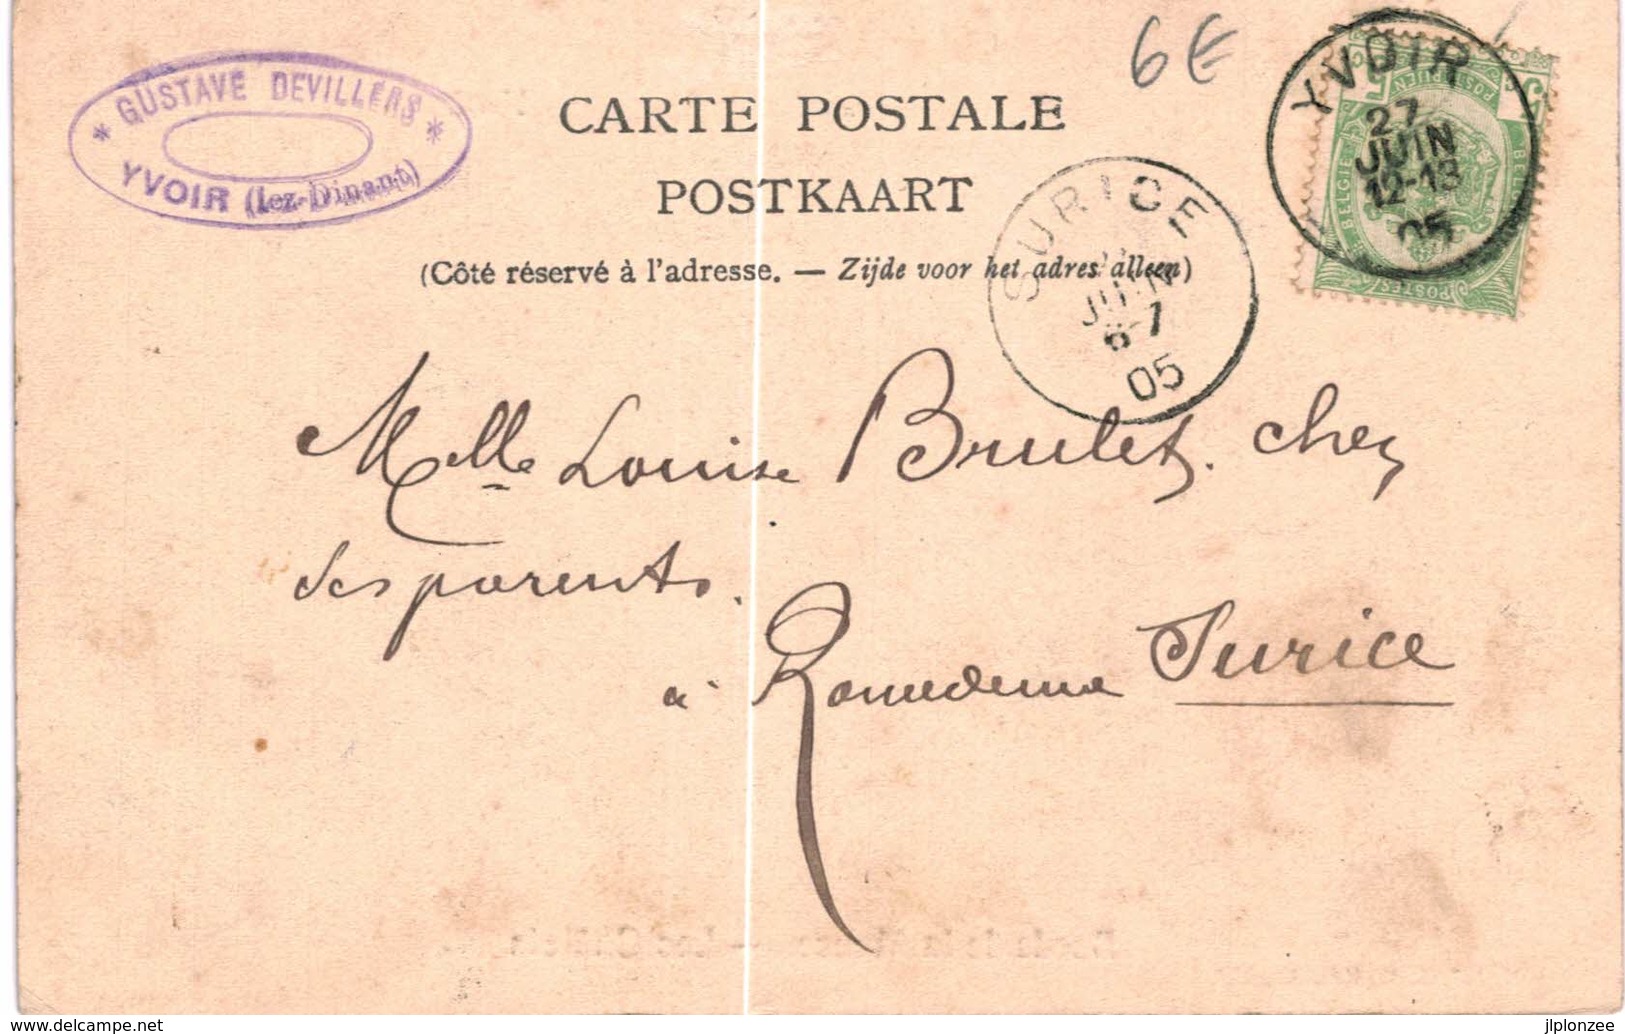 6€
GUSTAVE DEVILLERS
YVOIR (lez-Dinant)
CARTE POSTALE
POSTKAART
(Côté réservé à l'adresse. — Zijde voor het adres alleen)
YVOIR
27
JUIN
12-13
05
SURICE
JUIN
6-7
05
Melle Louise Brulet. chez
ses parents.
à Romedenne Surice
www.delcampe.net
jlplonzee